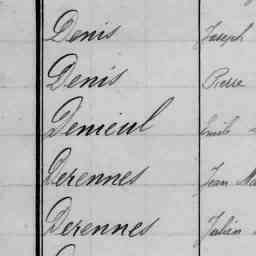 Denis Joseph
Denis Pierre
Denieul Emile
Derennes Jean Ma
Derennes Julien